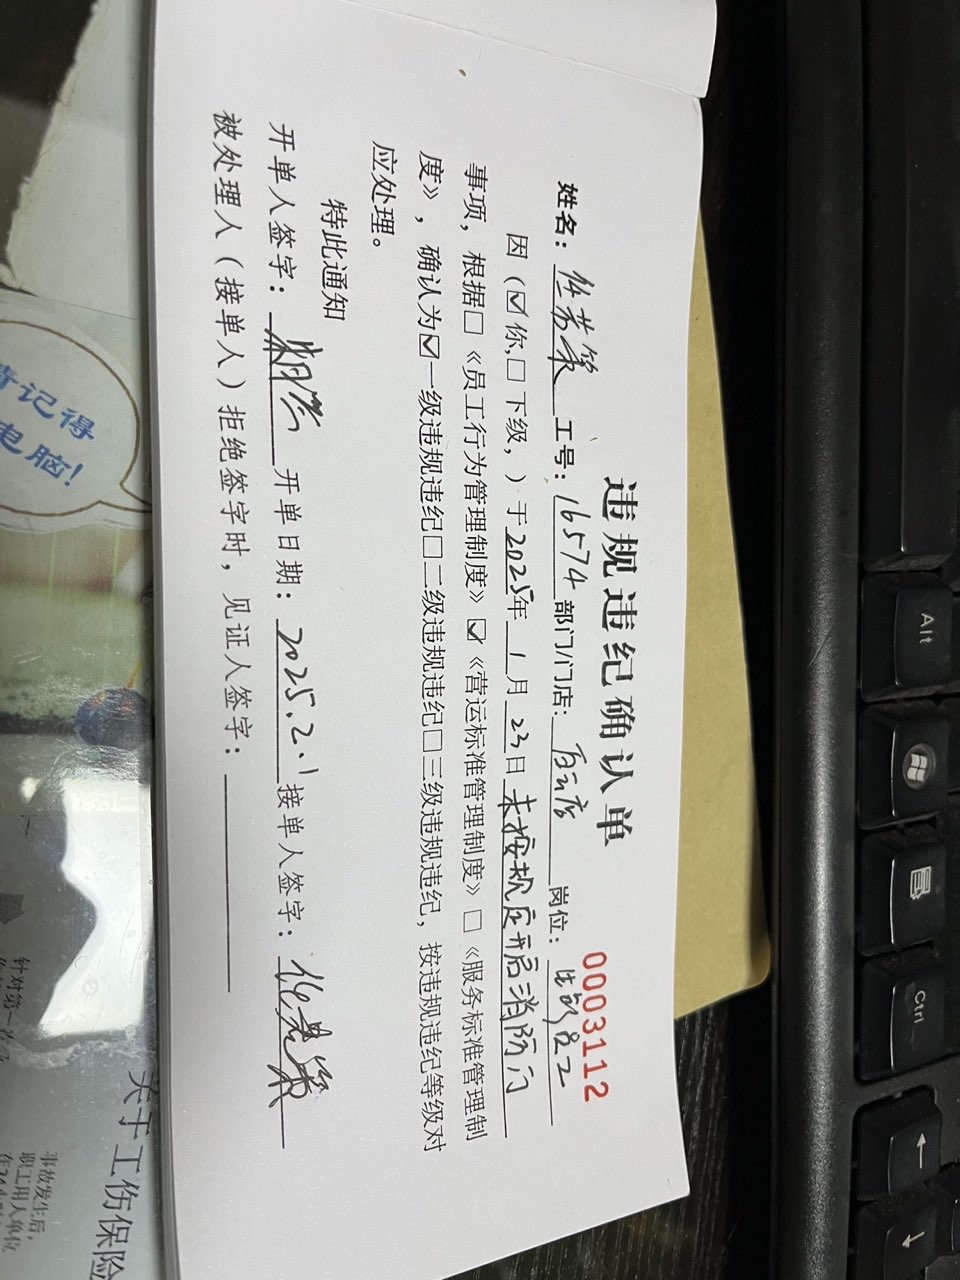 违规违纪确认单
0003112
姓名： 工号：16574 部门/门店： 店 岗位：
因（☑你,☐下级，）于2025年1月23日未按规定开启消防门
事项，根据☐《员工行为管理制度》☑《营运标准管理制度》☐《服务标准管理制
度》，确认为☑一级违规违纪☐二级违规违纪☐三级违规违纪，按违规违纪等级对
应处理。
特此通知
开单人签字： 开单日期：2025.2.1 接单人签字：
被处理人（接单人）拒绝签字时，见证人签字：
Alt
Ctrl
记得
电脑！
关于工伤保险
事故发生后，
职工用人单位
针对第一